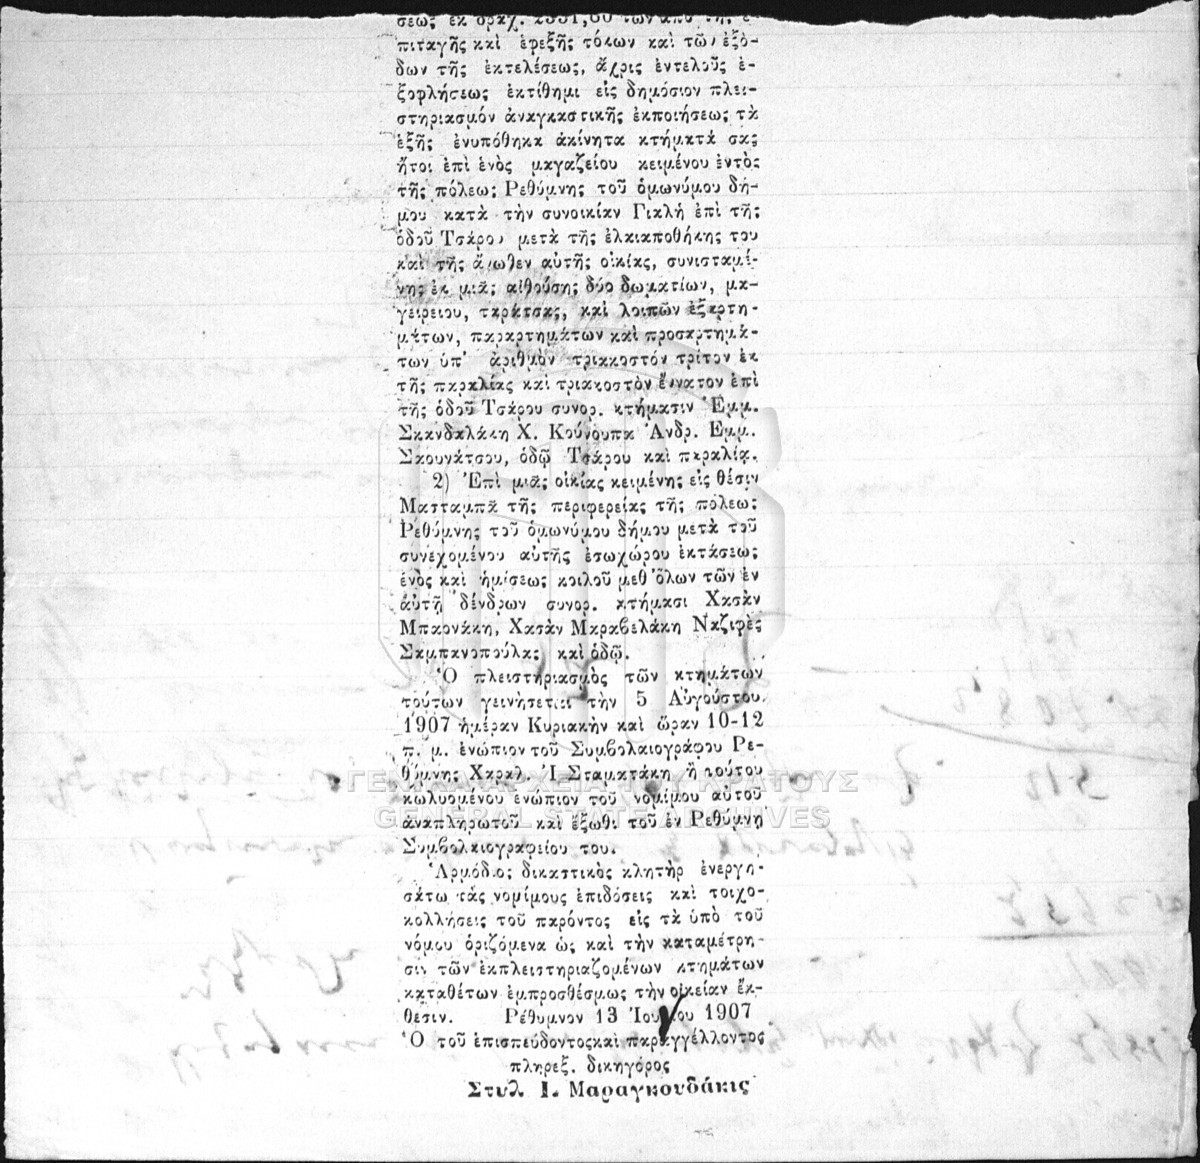 σεως ἐκ δραχ. 2331,60 τῶν ἀπὸ τῆς ἐ-
πιταγῆς καὶ ἐφεξῆς τόκων καὶ τῶν ἐξό-
δων τῆς ἐκτελέσεως, ἄχρις ἐντελοῦς ἐ-
ξοφλήσεως ἐκτίθημι εἰς δημόσιον πλει-
στηριασμόν ἀναγκαστικῆς ἐκποιήσεως τὰ
ἑξῆς ἐνυπόθηκα ἀκίνητα κτήματά σας
ἤτοι ἐπὶ ἑνὸς μαγαζείου κειμένου ἐντὸς
τῆς πόλεως Ρεθύμνης τοῦ ὁμωνύμου δή-
μου κατὰ τὴν συνοικίαν Γιαλή ἐπὶ τῆς
ὁδοῦ Τσάρου μετὰ τῆς ἐλαιαποθήκης του
καὶ τῆς ἄνωθεν αὐτῆς οἰκίας, συνισταμέ-
νης ἐκ μιᾶς αἰθούσης δύο δωματίων, μα-
γειρείου, ταράτσας, καὶ λοιπῶν ἐξαρτη-
μάτων, παραρτημάτων καὶ προσαρτημά-
των ὑπ' ἀριθμὸν τριακοστόν τρίτον ἐκ
τῆς παραλίας καὶ τριακοστὸν ἔννατον ἐπὶ
τῆς ὁδοῦ Τσάρου συνορ. κτήμασιν Ἐμμ.
Σκανδαλάκη Χ. Κούνουπα Ἀνδρ. Ἐμμ.
Σκουνάτσου, ὁδῷ Τσάρου καὶ παραλίᾳ.
2) Ἐπὶ μιᾶς οἰκίας κειμένης εἰς θέσιν
Μασταμπᾶ τῆς περιφερείας τῆς πόλεως
Ρεθύμνης τοῦ ὁμωνύμου δήμου μετὰ τοῦ
συνεχομένου αὐτῆς ἐσωχώρου ἐκτάσεως
ἑνὸς καὶ ἡμίσεως κοιλοῦ μεθ' ὅλων τῶν ἐν
αὐτῇ δένδρων συνορ. κτήμασι Χασὰν
Μπαρνάκη, Χασὰν Μαραβελάκη Ναζιφὲς
Σαμπανοπούλας καὶ ὁδῷ.
Ὁ πλειστηριασμὸς τῶν κτημάτων
τούτων γεινήσεται τὴν 5 Αὐγούστου
1907 ἡμέραν Κυριακὴν καὶ ὥραν 10-12
π. μ. ἐνώπιον τοῦ Συμβολαιογράφου Ρε-
θύμνης Χαραλ. Ἰ. Σταματάκη ἢ τούτου
κωλυομένου ἐνώπιον τοῦ νομίμου αὐτοῦ
ἀναπληρωτοῦ καὶ ἔξωθι τοῦ ἐν Ρεθύμνῃ
Συμβολαιογραφείου του.
Ἁρμόδιος δικαστικὸς κλητὴρ ἐνεργη-
σάτω τὰς νομίμους ἐπιδόσεις καὶ τοιχο-
κολλήσεις τοῦ παρόντος εἰς τὰ ὑπὸ τοῦ
νόμου ὁριζόμενα ὡς καὶ τὴν καταμέτρη-
σιν τῶν ἐκπλειστηριαζομένων κτημάτων
καταθέτων ἐμπροσθέσμως τὴν οἰκείαν ἔκ-
θεσιν. Ρέθυμνον 13 Ἰουνίου 1907
Ὁ τοῦ ἐπισπεύδοντος καὶ παραγγέλλοντος
πληρεξ. δικηγόρος
Στυλ Ι. Μαραγκουδάκις
ΓΕΝΙΚΑ ΑΡΧΕΙΑ ΤΟΥ ΚΡΑΤΟΥΣ
GENERAL STATE ARCHIVES